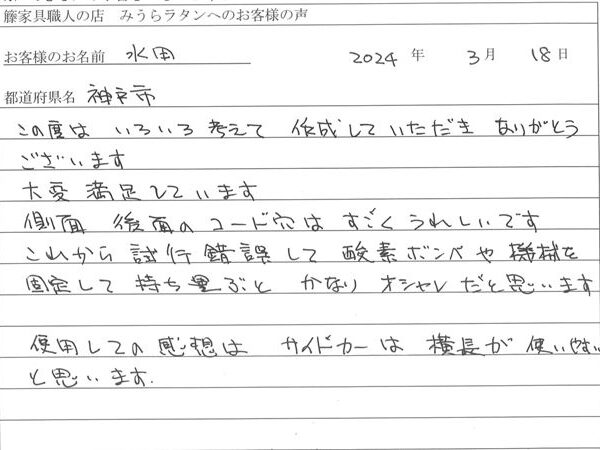 籐家具職人の店 みうらラタンへのお客様の声
お客様のお名前 水田 2024 年 3 月 18 日
都道府県名 神戸市
この度は いろいろ 考えて 作成して いただき ありがとう
ございます
大変 満足しています
側面 後面の コード穴は すごく うれしいです
これから 試行錯誤して 酸素ボンベや 機械を
固定して 持ち運ぶと かなり オシャレ だと思います
使用しての 感想は サイドカーは 横長が 使いやすい
と思います.